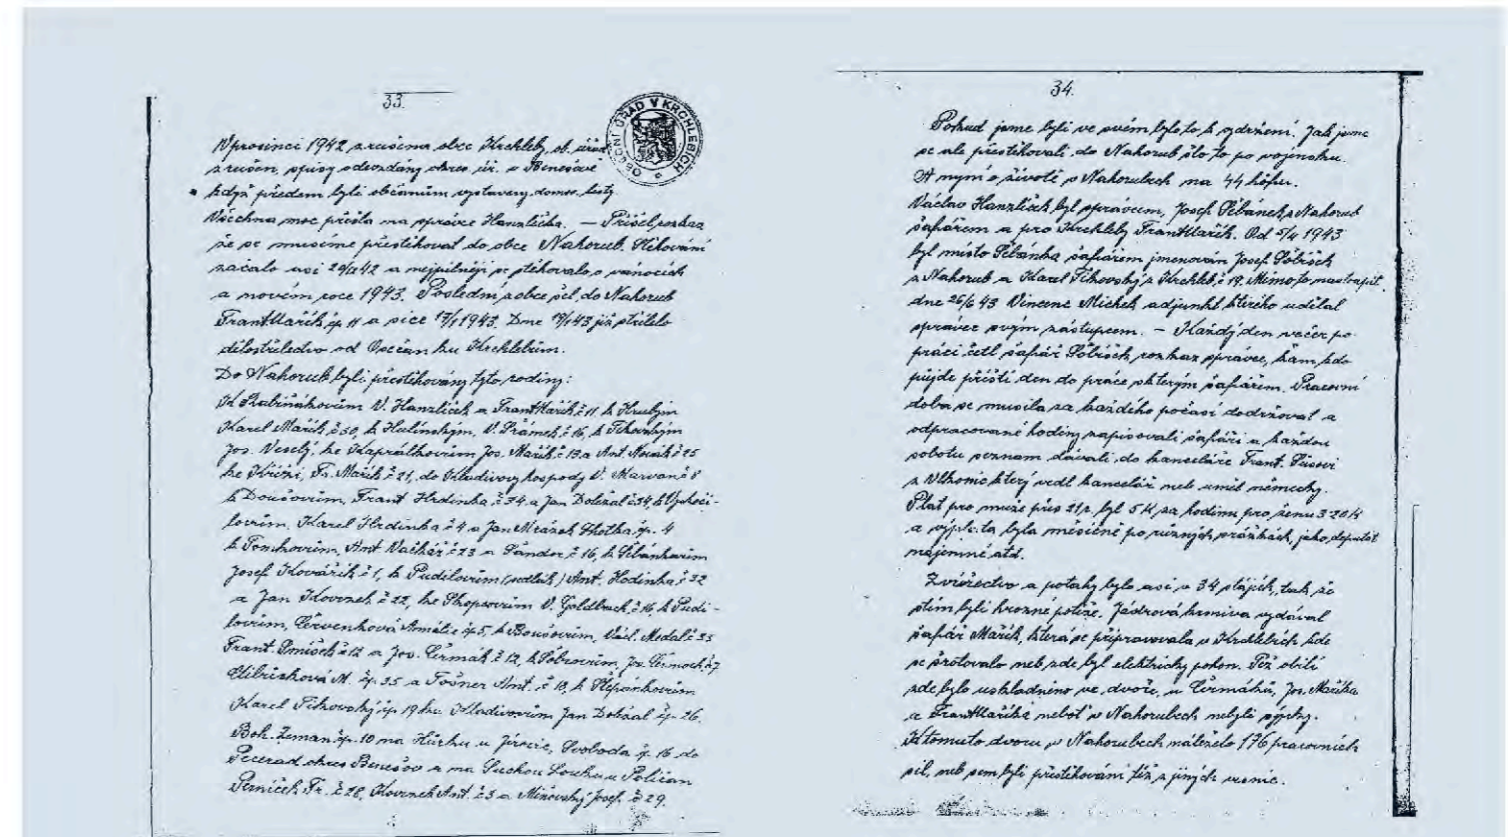 33.
OBECNÍ ÚŘAD V KRCHLEBÍCH
V prosinci 1942 zrušena obec Krchleby, ob. úřad
zrušen, spisy odevzdány okres. úř. v Benešově
když předem byly občanům vystaveny domov. listy
Všechna moc přešla na správce Hanzlíčka. — Přišel rozkaz
že se musíme přestěhovat do obce Nahorub. Stěhování
začalo asi 1942 a nejpilněji se stěhovalo o vánocích
a novém roce 1943. Poslední z obce šel do Nahorub
Frant Mařík čp 11 a sice 1943. Dne již střílelo
dělostřelectvo od Osečan ku Krchlebům.
Do Nahorub byli přestěhovány tyto rodiny:
K V. Hanzlíček a Frant Mařík č 11 k Hrubým
Karel Mařík č 30, k Hulínským, V. č 16, k Tihovským
Jos. Veselý, ke Kaprálkovům Jos. Mařík č 13 a Ant.
ke Fr. Mařík č 21, do Kladivovy hospody V. Marvan č 8
k Doušovům, Frant Hrdinka č 24 a Jan Doležal č 34, k Vyskoči-
lovům, Karel Hrdinka č 4 a Jan Mrázek Lhotka čp. 4
k Ant Vačkář č 23 a č 16, k Šebánkovům
Josef Kovářík č 1, k Pudilovům (sedlák) Ant. Hodinka č 32
a Jan č 22, ke Skopovům V. Goldbach č 16, k Pudi-
lovům, Červenková Amálie čp 5, k Boušovům, Václ. Medal č 33
Frant. č 12 a Jos. Čermák č 12, k Jos. č 7
M. čp. 35 a Ant. č 10, k Štěpánkovům
Karel Tihovský čp 19 ku Kladivovům Jan Doležal čp 26.
Boh. Zeman čp. 10 na Hůrku u Svoboda čp. 16 do
Pecerad okres Benešov a na Suchou Louku u Poličan
Fr. č 28, Ant. č 3 a Josef. č 29.
34.
Pokud jsme byli ve svém bylo to k vydržení. Jak jsme
se ale přestěhovali do Nahorub šlo to po vojensku.
A nyní o životě v Nahorubech na 44 hófu.
Václav Hanzlíček byl správcem, Josef Šebánek z Nahorub
šafářem a pro Krchleby Frant Mařík. Od 5/4 1943
byl místo Šebánka šafářem jmenován Josef
z Nahorub a Karel Tihovský z Krchleb č 19. Mimo to nastoupil
dne 26/6 43 Vincenc Michek adjunkt kterého udělal
správce svým zástupcem. — Každý den večer po
práci četl šafář rozkaz správce, kam kdo
půjde příští den do práce s kterým šafářem. Pracovní
doba se musila za každého počasí dodržovat a
odpracované hodiny zapisovali šafáři a každou
sobotu seznam dávali do kanceláře Frant.
z který vedl kancelář neb uměl německy.
Plat pro muže přes 21 r. byl 5 K za hodinu pro ženu 3·20 K
a výplata byla měsíčně po různých srážkách, jako deputát
nájemné atd.
Zvířectvo a potahy bylo asi v 34 stájích, tak že
stím byli hrozné potíže. Jádrová krmiva vydával
šafář Mařík, která se připravovala v Krchlebích kde
se šrotovalo neb zde byl elektrický pohon. Též obilí
zde bylo uskladněno ve dvoře, u Čermáků, Jos. Maříka
a Frant Maříka neboť v Nahorubech nebyli sýpky.
K tomuto dvoru v Nahorubech náleželo 176 pracovních
sil, neb sem byli přestěhováni též z jiných vesnic.